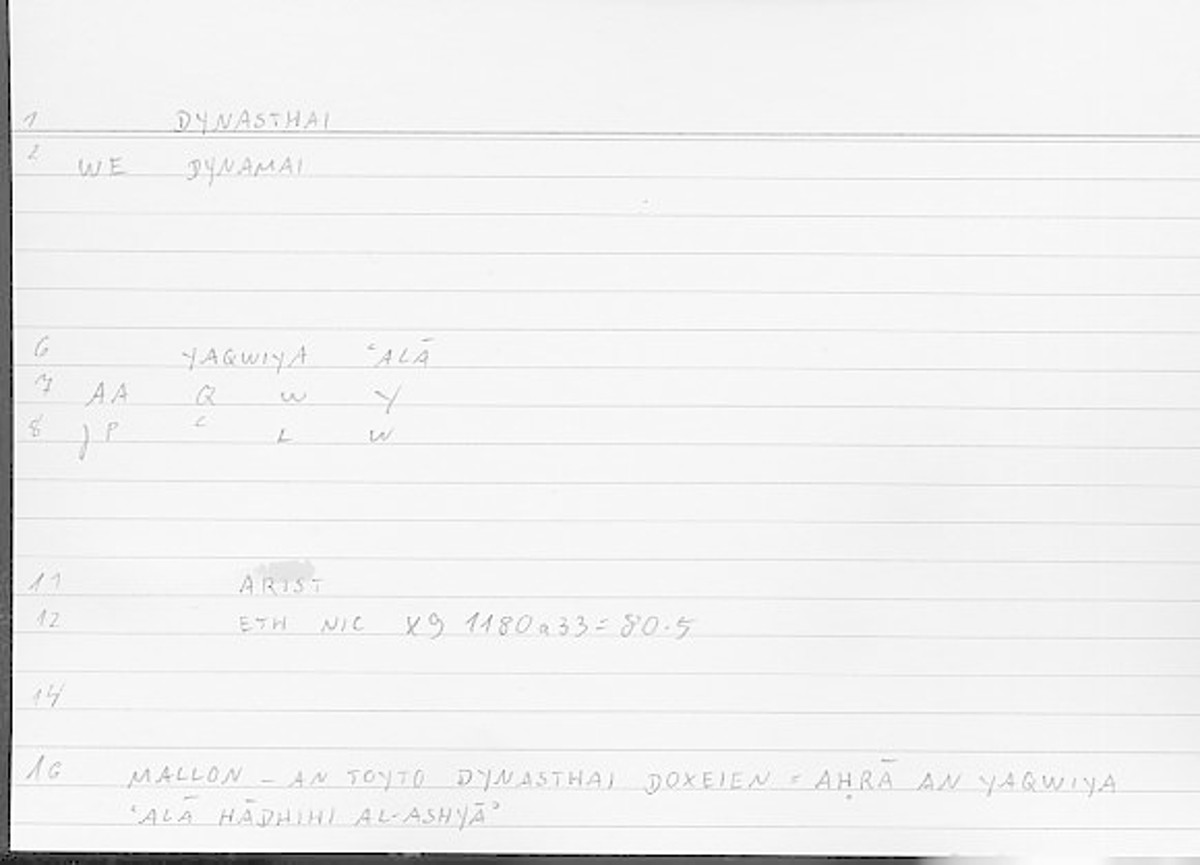 1 DYNASTHAI
2 WE DYNAMAI
6 YAQWIYA ʿALĀ
7 AA Q W Y
8 JP ʿ L W
11 ARIST
12 ETH NIC X9 1180a33 = 80.5
14
16 MALLON – AN TOYTO DYNASTHAI DOXEIEN = AḤRĀ AN YAQWIYA
ʿALĀ HĀDHIHI AL-ASHYĀʾ